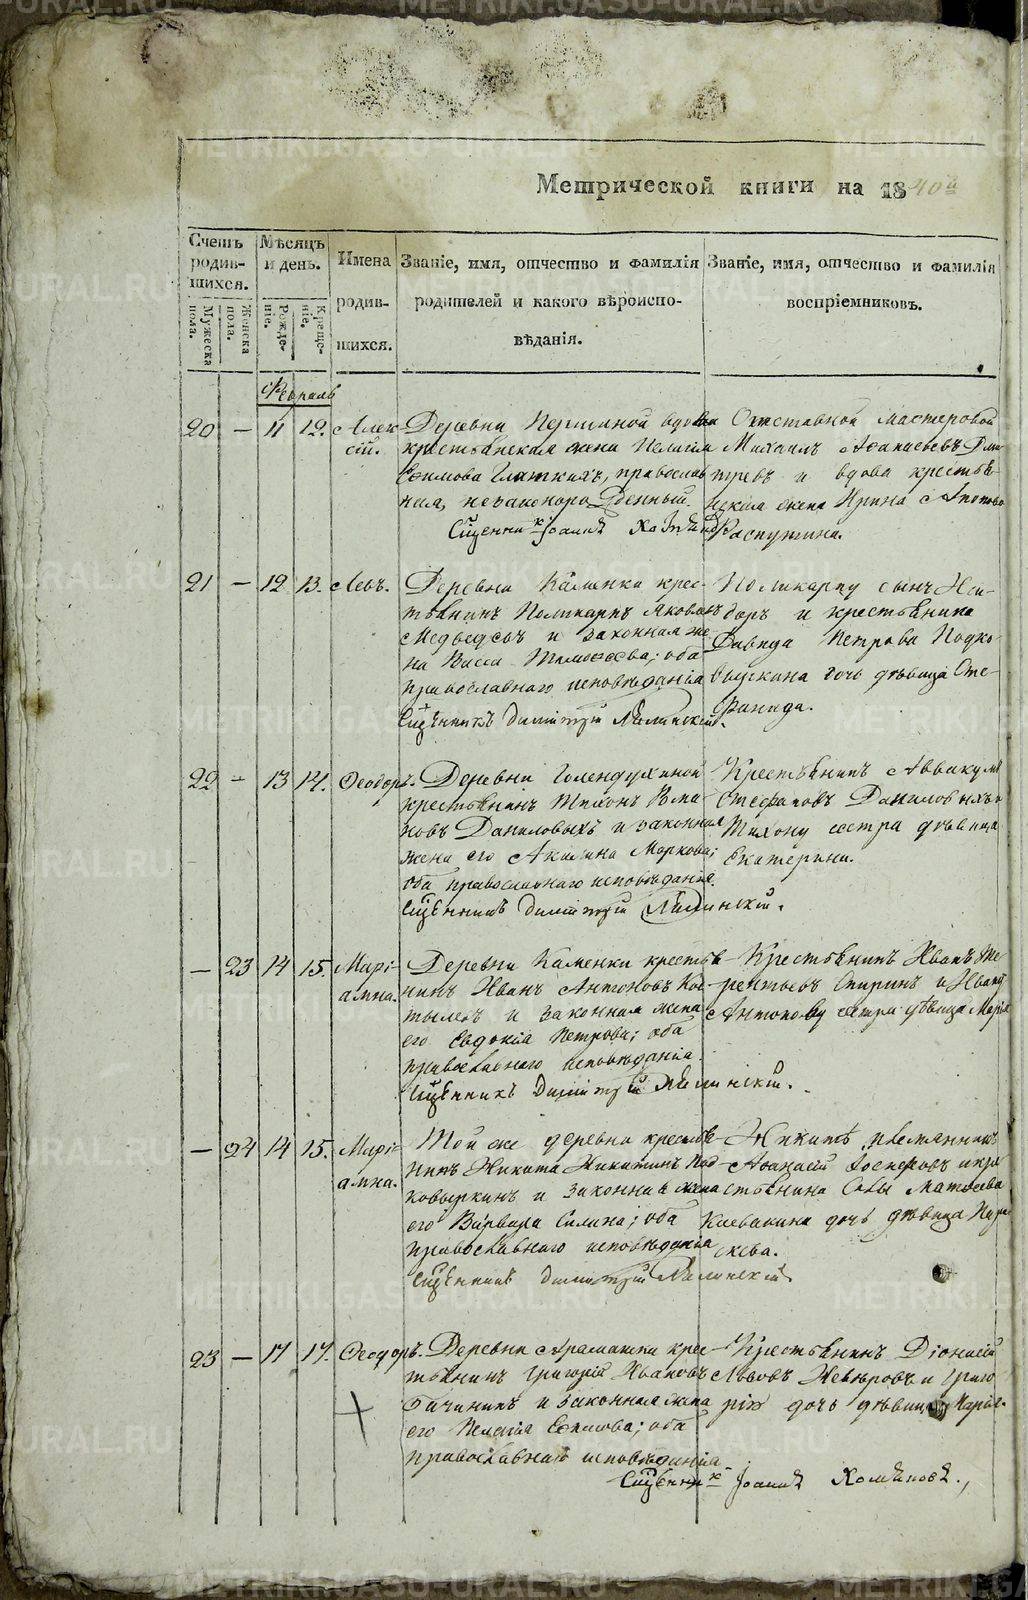 Метрической книги на 1840й
Счетъ родившихся.
Мужеска пола.
Женска пола.
Мѣсяцъ и день.
Рожденіе.
Крещеніе.
Имена родившихся.
Званіе, имя, отчество и фамилія
родителей и какого вѣроиспо-
вѣданія.
Званіе, имя, отчество и фамилія
воспріемниковъ.
Февраль
20 — 11 12. Алек
сій.
Деревни вдова
крестьянская жена Пелагія
Ефимова Глаткихъ, православ
ная, незаконорожденный.
Сщенникъ Іоаннъ
Отставной мастеровой
Михаилъ Аѳанасьевъ
и вдова крестья-
нская жена Ирина
Распутина.
21 — 12 13. Левъ.
Деревни Каменки крес-
тьянинъ Поликарпъ Яковлевъ
Медведевъ и законная же
на Васса Тимоѳеева; оба
православнаго исповѣданія
Сщенникъ Димитрій
Поликарпу сынъ Иси-
доръ и крестьянина
Давида Петрова Подко-
выркина дочь дѣвица Сте-
фанида.
22 — 13 14. Ѳеодоръ.
Деревни Голендухиной
крестьянинъ Тихонъ Рома-
новъ Даниловыхъ и законная
жена его Акилина Маркова;
оба православнаго исповѣданія.
Сщенникъ Димитрій
Крестьянинъ Аввакумъ
Стефановъ Даниловыхъ и
Тихону сестра дѣвица
Екатерина.
— 23 14 15 Марі-
амна.
Деревни Каменки крестья-
нинъ Иванъ Антоновъ Кос-
тылевъ и законная жена
его Евдокія Петрова; оба
православнаго исповѣданія.
Сщенникъ Димитрій
Крестьянинъ Иванъ Те-
рентьевъ Спиринъ и Ивану
Антонову сестра дѣвица Марія
— 24 14 15. Марі-
амна.
Той же деревни крестья-
нинъ Никита Никитинъ Под-
ковыркинъ и законная жена
его Варвара Силина; оба
православнаго исповѣданія
Сщенникъ Димитрій
Никитѣ племянникъ
Аѳанасій и кре-
стьянина Савы Матѳеева
дочь дѣвица Пара-
скева.
23 — 17 17. Ѳеодоръ.
Деревни Арамашки крес-
тьянинъ Григорій Ивановъ
Бачининъ и законная жена
его Пелагія Ефимова; оба
православнаго исповѣданія
Сщенникъ Іоаннъ
Крестьянинъ Діонисій
Львовъ Невѣровъ и Григо
рія дочь дѣвица Марья.